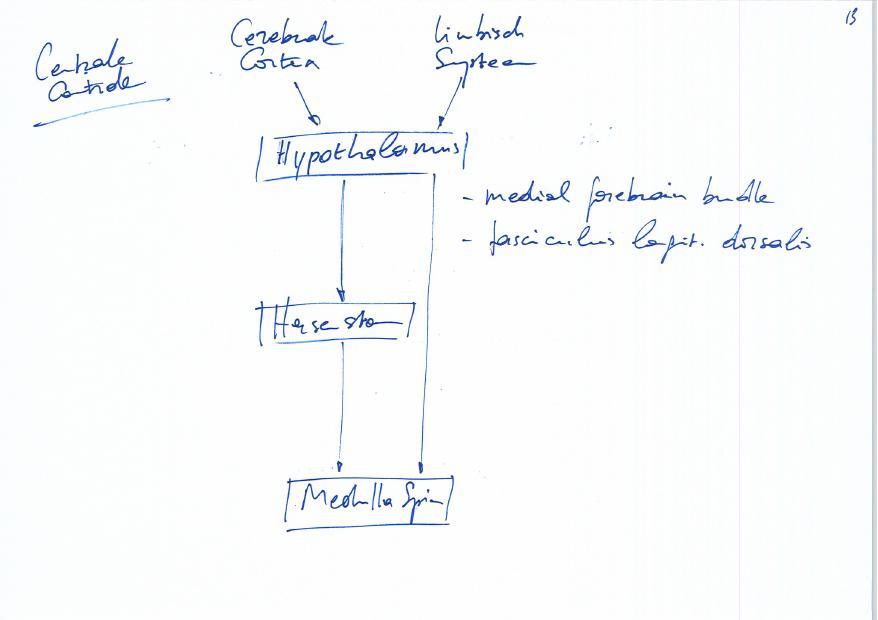 13
Centrale
Controle
Cerebrale
Cortex
Limbisch
Systeem
Hypothalamus
- medial forebrain bundle
- fasciculus longit. dorsalis
Hersenstam
Medulla Spin